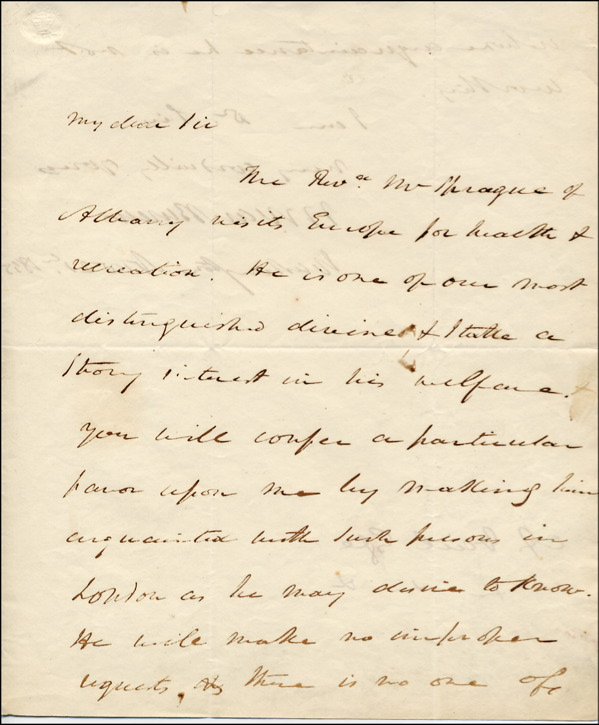 My dear Sir
The Revd. Mr Sprague of
Albany visits Europe for health &
recreation. He is one of our most
distinguished divines & I take a
strong interest in his welfare. &
you will confer a particular
favor upon me by making him
acquainted with such persons in
London as he may desire to know.
He will make no improper
requests, there is no one of